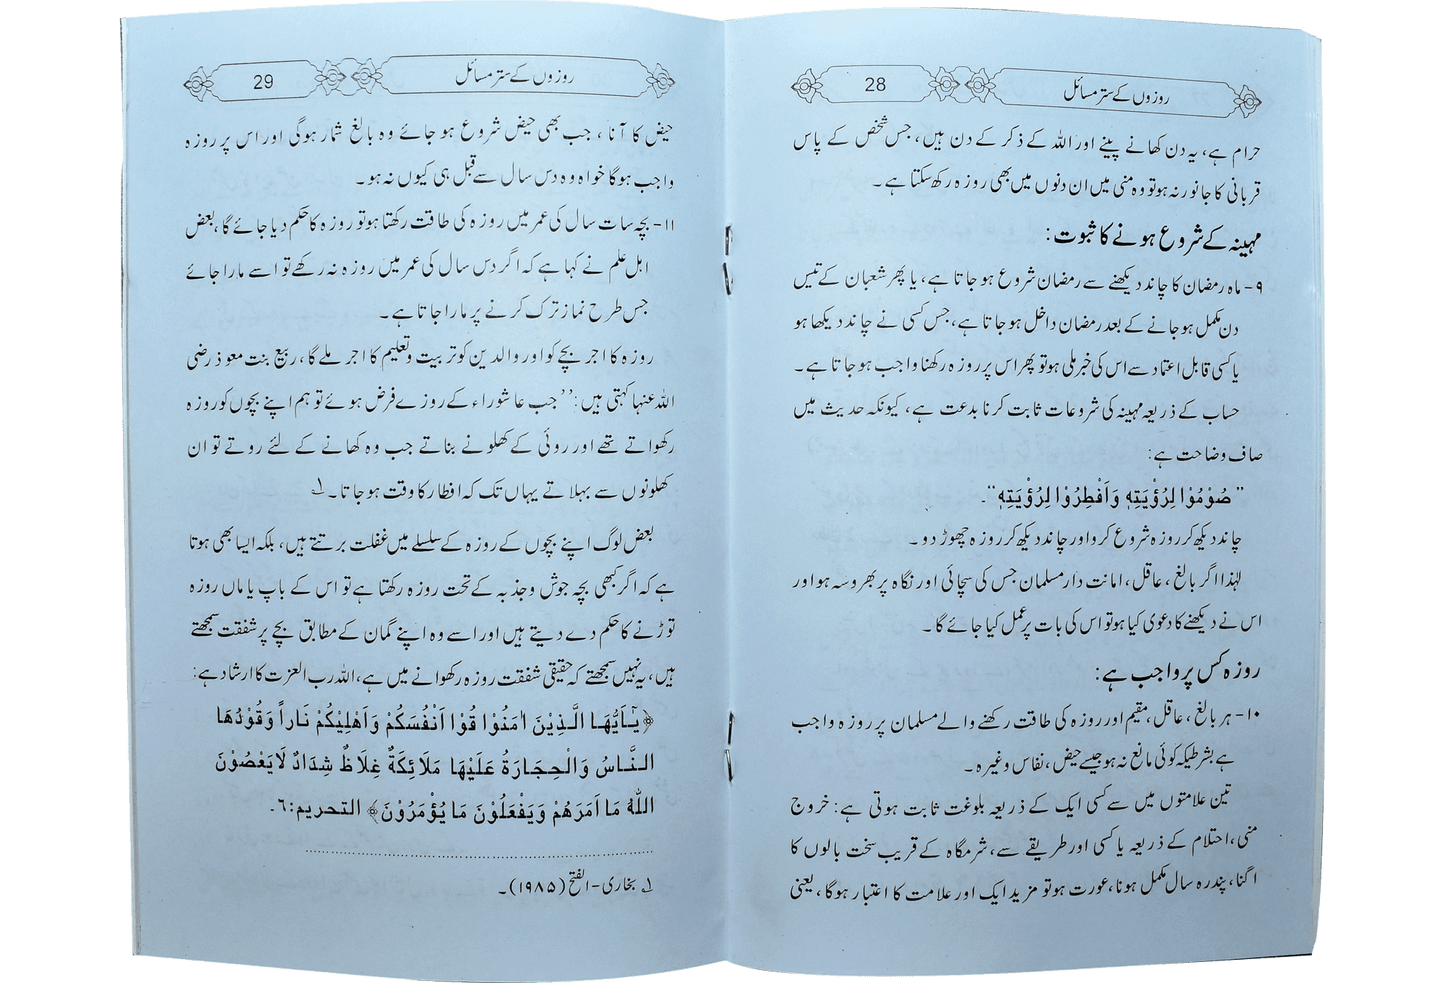 روزوں کے ستر مسائل
28
حرام ہے، یہ دن کھانے پینے اور اللہ کے ذکر کے دن ہیں، جس شخص کے پاس
قربانی کا جانور نہ ہو تو وہ منی میں ان دنوں میں بھی روزہ رکھ سکتا ہے۔
مہینہ کے شروع ہونے کا ثبوت:
۹- ماہ رمضان کا چاند دیکھنے سے رمضان شروع ہو جاتا ہے، یا پھر شعبان کے تیس
دن مکمل ہو جانے کے بعد رمضان داخل ہو جاتا ہے، جس کسی نے چاند دیکھا ہو
یا کسی قابل اعتماد سے اس کی خبر ملی ہو تو پھر اس پر روزہ رکھنا واجب ہو جاتا ہے۔
حساب کے ذریعہ مہینہ کی شروعات ثابت کرنا بدعت ہے، کیونکہ حدیث میں
صاف وضاحت ہے:
”صُوْمُوْا لِرُؤْيَتِهٖ وَاَفْطِرُوْا لِرُؤْيَتِهٖ“۔
چاند دیکھ کر روزہ شروع کرو اور چاند دیکھ کر روزہ چھوڑ دو۔
لہٰذا اگر بالغ، عاقل، امانت دار مسلمان جس کی سچائی اور نگاہ پر بھروسہ ہو اور
اس نے دیکھنے کا دعوی کیا ہو تو اس کی بات پر عمل کیا جائے گا۔
روزہ کس پر واجب ہے:
۱۰- ہر بالغ، عاقل، مقیم اور روزہ کی طاقت رکھنے والے مسلمان پر روزہ واجب
ہے بشرطیکہ کوئی مانع نہ ہو جیسے حیض، نفاس وغیرہ۔
تین علامتوں میں سے کسی ایک کے ذریعہ بلوغت ثابت ہوتی ہے: خروج
منی، احتلام کے ذریعہ یا کسی اور طریقے سے، شرمگاہ کے قریب سخت بالوں کا
اگنا، پندرہ سال مکمل ہونا، عورت ہو تو مزید ایک اور علامت کا اعتبار ہوگا، یعنی
روزوں کے ستر مسائل
29
حیض کا آنا، جب بھی حیض شروع ہو جائے وہ بالغ شمار ہوگی اور اس پر روزہ
واجب ہوگا خواہ وہ دس سال سے قبل ہی کیوں نہ ہو۔
۱۱- بچہ سات سال کی عمر میں روزہ کی طاقت رکھتا ہو تو روزہ کا حکم دیا جائے گا، بعض
اہل علم نے کہا ہے کہ اگر دس سال کی عمر میں روزہ نہ رکھے تو اسے مارا جائے
جس طرح نماز ترک کرنے پر مارا جاتا ہے۔
روزہ کا اجر بچے کو اور والدین کو تربیت وتعلیم کا اجر ملے گا، ربیع بنت معوذ رضی
اللہ عنہا کہتی ہیں: ’’جب عاشوراء کے روزے فرض ہوئے تو ہم اپنے بچوں کو روزہ
رکھواتے تھے اور روئی کے کھلونے بناتے جب وہ کھانے کے لئے روتے تو ان
کھلونوں سے بہلاتے یہاں تک کہ افطار کا وقت ہو جاتا۔ ۱؎
بعض لوگ اپنے بچوں کے روزہ کے سلسلے میں غفلت برتتے ہیں، بلکہ ایسا بھی ہوتا
ہے کہ اگر کبھی بچہ جوش وجذبہ کے تحت روزہ رکھتا ہے تو اس کے باپ یا ماں روزہ
توڑنے کا حکم دے دیتے ہیں اور اسے وہ اپنے گمان کے مطابق بچے پر شفقت سمجھتے
ہیں، یہ نہیں سمجھتے کہ حقیقی شفقت روزہ رکھوانے میں ہے، اللہ رب العزت کا ارشاد ہے:
﴿يٰٓاَيُّهَا الَّذِيْنَ اٰمَنُوْا قُوْا اَنْفُسَكُمْ وَاَهْلِيْكُمْ نَاراً وَقُوْدُهَا
النَّاسُ وَالْحِجَارَةُ عَلَيْهَا مَلَائِكَةٌ غِلَاظٌ شِدَادٌ لَا يَعْصُوْنَ
اللّٰهَ مَا اَمَرَهُمْ وَيَفْعَلُوْنَ مَا يُؤْمَرُوْنَ﴾ التحریم:٦۔
۱؎ بخاری-الفتح (۱۹۸۵)۔